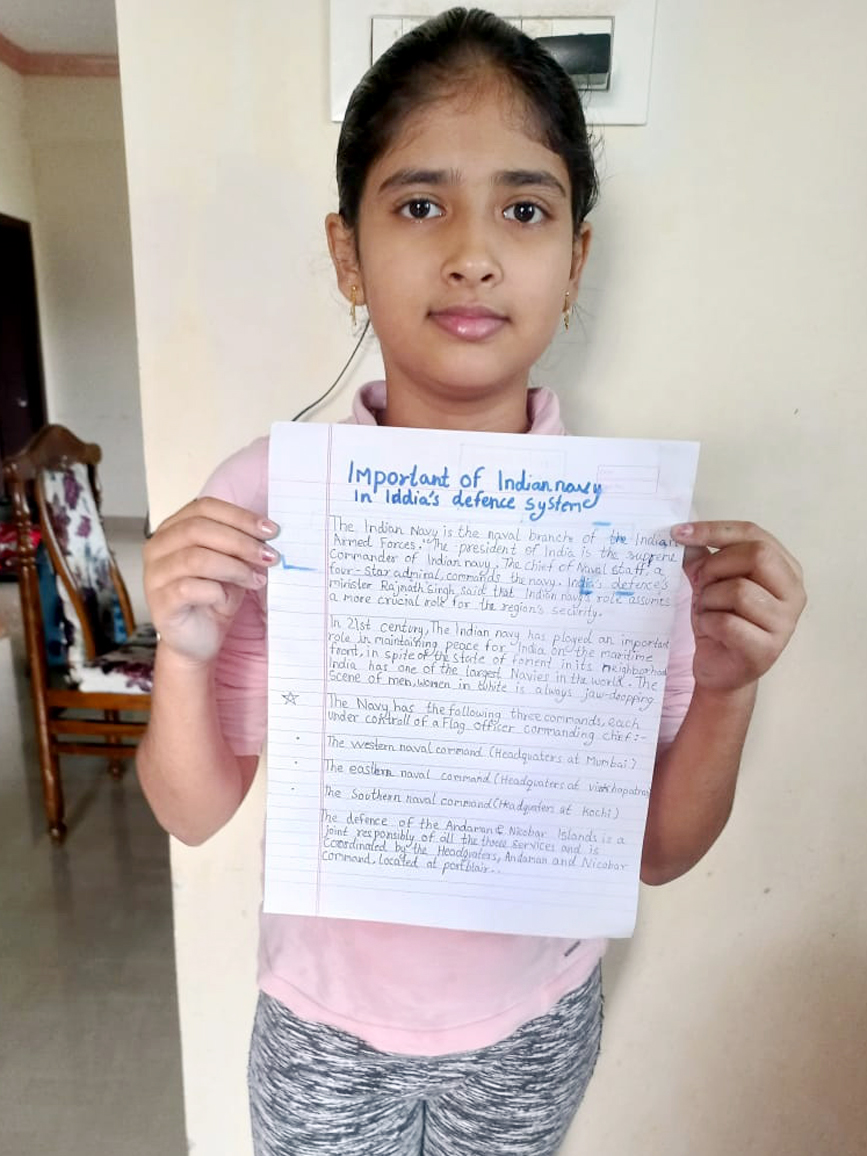 Important of Indian navy
In Iddia's defence system
The Indian Navy is the naval branch of the Indian
Armed Forces. The president of India is the supreme
Commander of Indian navy. The chief of Naval staff, a
four-star admiral, commands the navy. India's defence's
minister Rajnath Singh, said that Indian navy's role assumes
a more crucial role for the region's security.
In 21st century, The Indian navy has played an important
role in maintaining peace for India on the maritime
front, in spite of the state of foment in its neighborhood
India has one of the largest Navies in the world. The
scene of men, women in white is always jaw-dropping
☆ The Navy has the following three commands, each
under controll of a Flag officer commanding chief:-
· The western naval command (Headquaters at Mumbai)
· The eastern naval command (Headquaters at
· The Southern naval command (Headquaters at Kochi)
The defence of the Andaman & Nicobar Islands is a
joint responsibly of all the three services and is
Coordinated by the Headquaters, Andaman and Nicobar
command, located at portblair..